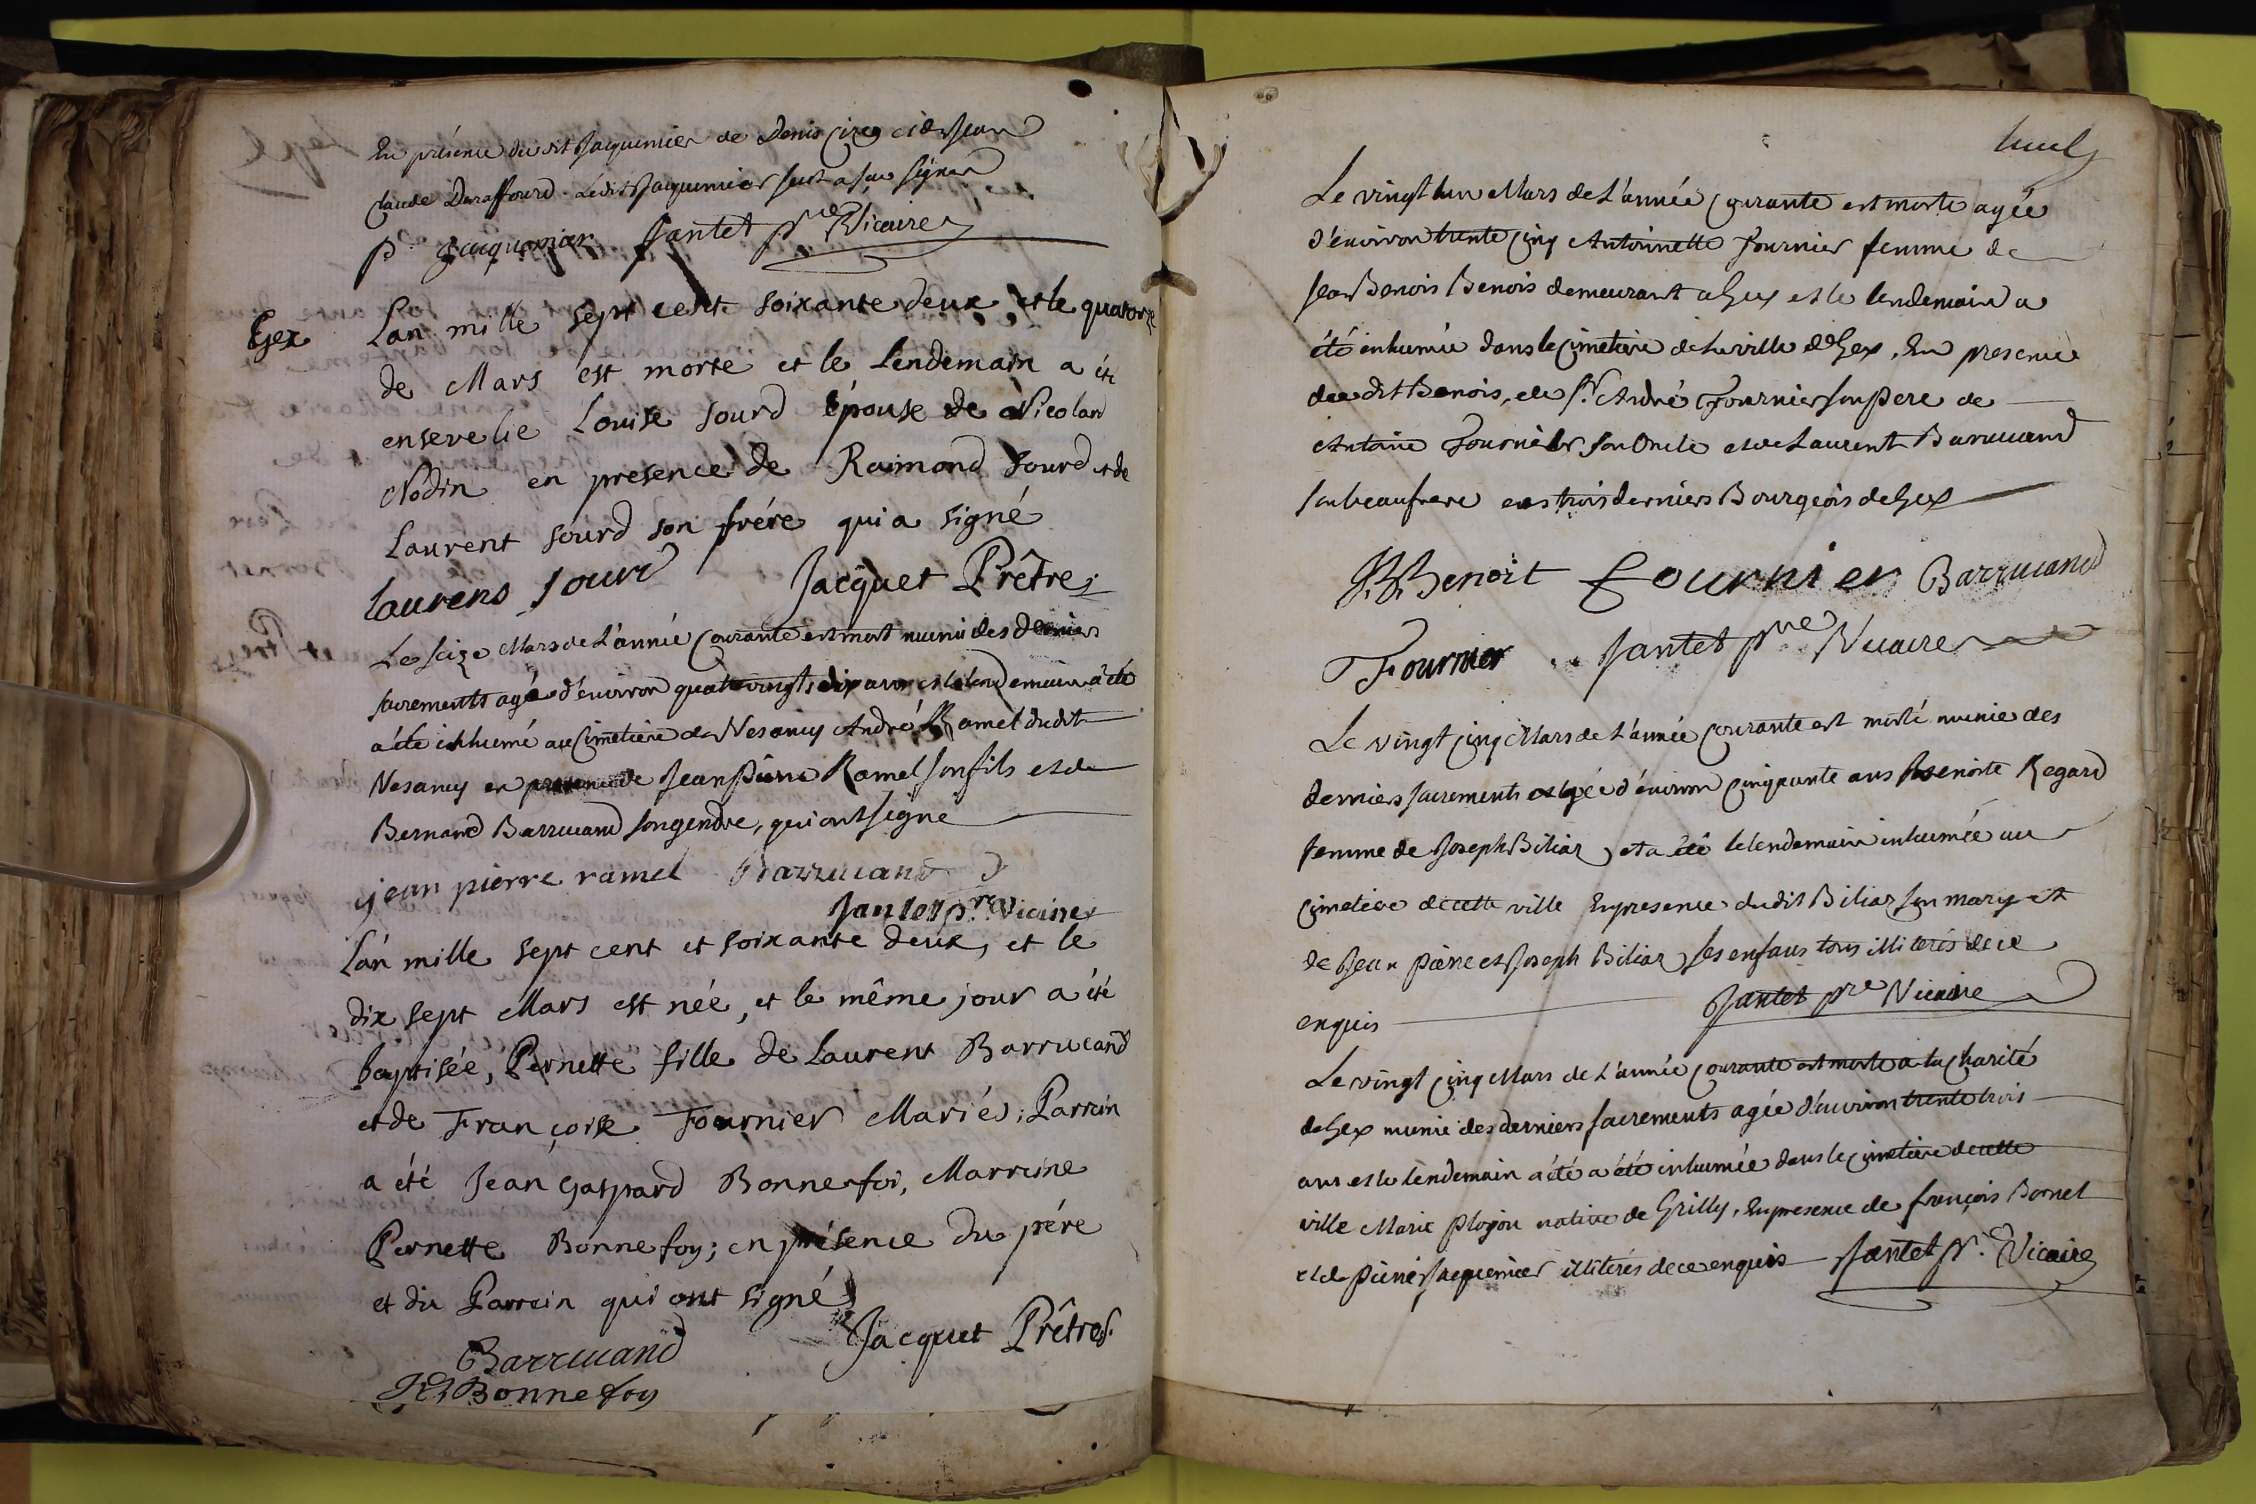 En présence du dit Jacquemier de Denis et de Jean
Claude Daraffourd. Ledit Jacquemier seul a sçu signer
p. Jacquemier Jantet pre Vicaire
Gex
Lan mille sept cent soixante deux, et le quatorze
de Mars est morte et le Lendemain a été
ensevelie Louise Sourd épouse de Nicolard
Nodin en presence de Raimond Sourd et de
Laurent Sourd son frére qui a signé
laurens Sourd Jacquet Prêtre
Le seize Mars de L'année Courante est mort muni des derniers
sacrements agé d'environ quatre vingt dix ans et le lendemain a été
a été inhumé au Cimetiere de Vesancy André Ramel dudit
Vesancy en presence de Jean Pierre Ramel son fils et de
Bernard Barrucand son gendre, qui ont signé
jean pierre ramel Barrucand
Jantet pre Vicaire
L'an mille sept cent et soixante deux, et le
dix sept Mars est née, et le même jour a été
baptisée, Pernette fille de Laurent Barrucand
et de Françoise Fournier Mariés; Parrein
a été Jean Gaspard Bonnefoi, Marreine
Pernette Bonnefoy; en présence du pére
et du Parrein qui ont signé
Jacquet Prêtre.
Barrucand
Bonnefoy
Le vingt un Mars de L'année Courante est morte agée
d'environ trente cinq Antoinette Fournier femme de
Jean Benois Benois demeurant a Gex et le lendemain a
été inhumée dans le Cimetiere de la ville de Gex, En presence
du dit Benois, de Sr. André Fournier son Pere de
Antoine Fournier son Oncle et de Laurent Barrucand
son beaufrere ces trois derniers Bourgeois de Gex
Benoit Fournier Barrucand
Fournier Jantet pre Vicaire
Le vingt cinq Mars de L'année Courante est morte munie des
derniers sacrements agée d'environ cinquante ans Benoite Regard
femme de Joseph Biliar, et a été le lendemain inhumée au
cimetiere de cette ville En presence dudit Biliar son mary et
de Jean Pierre et Joseph Biliar ses enfans tous illiterés de ce
enquis Jantet pre Vicaire
Le vingt cinq Mars de L'année Courante est morte a la Charité
de Gex munie des derniers sacrements agée d'environ trente trois
ans et le lendemain a été a été inhumée dans le cimetiere de cette
ville Marie Plojon native de Grilly, En presence de françois Bornet
et de Pierre Jacquemier illiterés de ce enquis Jantet pr. Vicaire